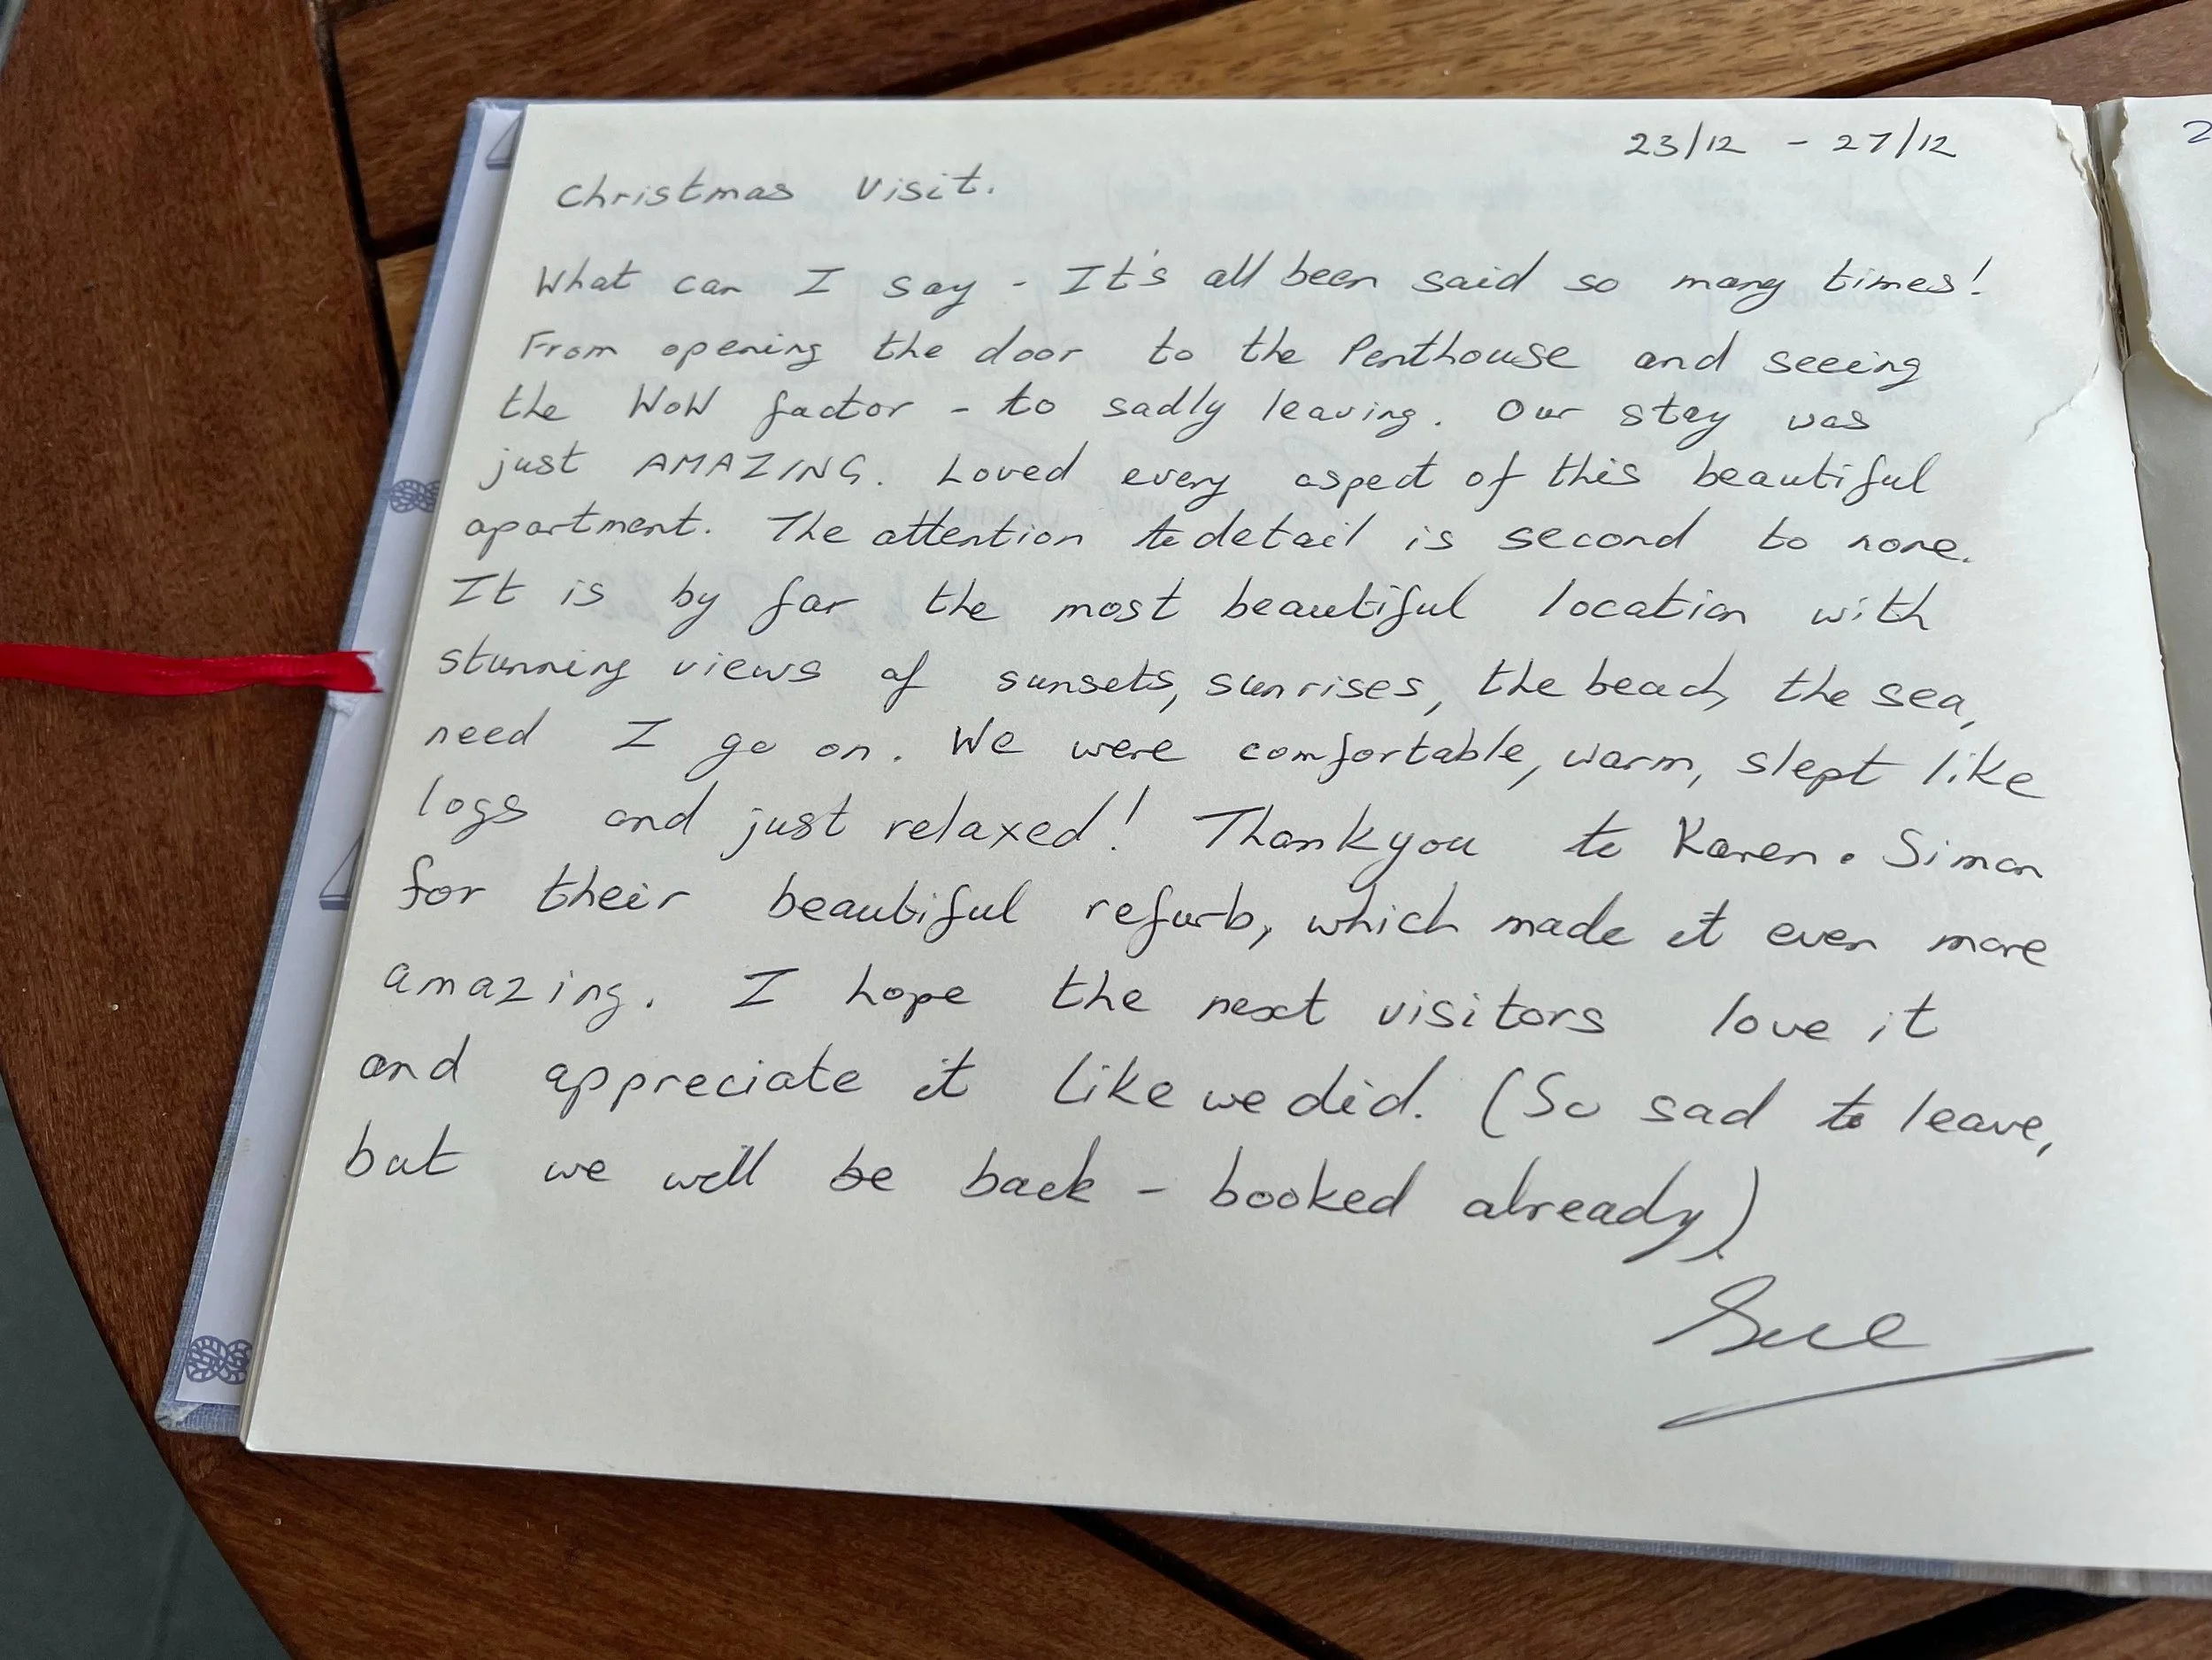 23/12 - 27/12
Christmas Visit.
What can I say - It's all been said so many times!
From opening the door to the Penthouse and seeing
the WOW factor - to sadly leaving. Our stay was
just AMAZING. Loved every aspect of this beautiful
apartment. The attention to detail is second to none.
It is by far the most beautiful location with
stunning views of sunsets, sunrises, the beach, the sea,
need I go on. We were comfortable, warm, slept like
logs and just relaxed! Thankyou to Karen • Simon
for their beautiful refurb, which made it even more
amazing. I hope the next visitors love it
and appreciate it like we did. (So sad to leave,
but we will be back - booked already)
Sue
2